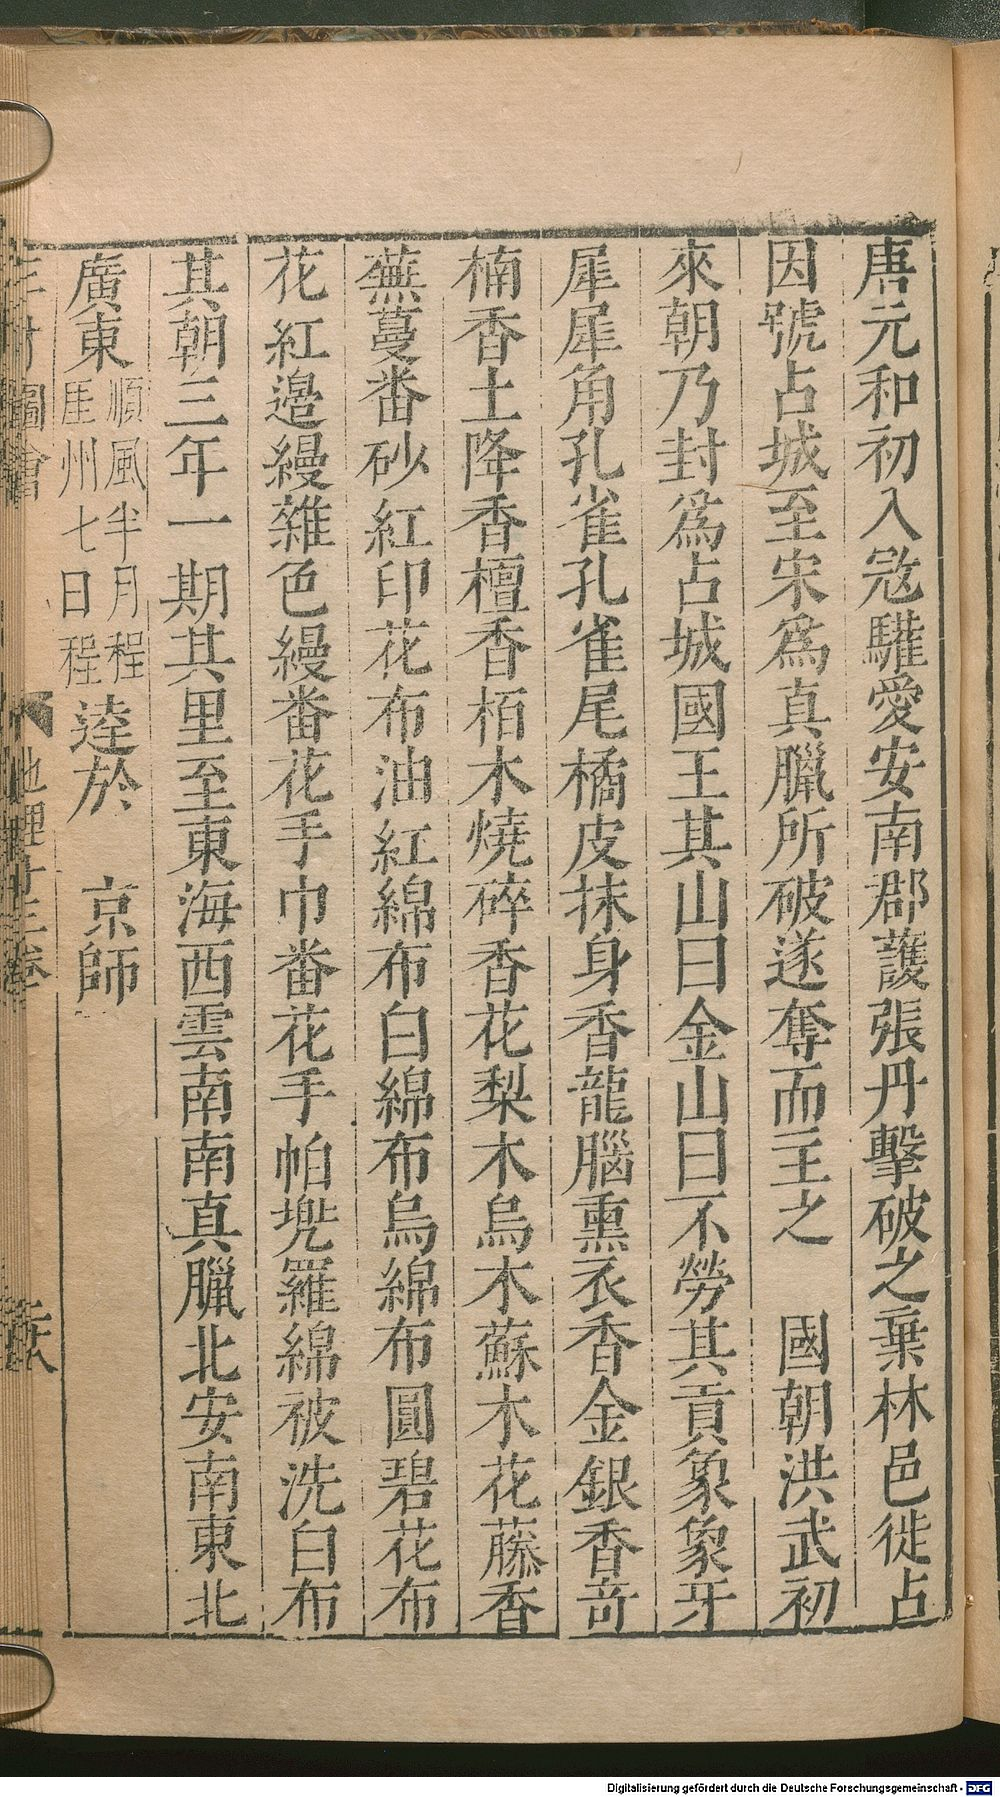 唐元和初入宼驩愛安南郡護張丹擊破之棄林邑徙占
因號占城至宋爲真臘所破遂奪而王之　國朝洪武初
來朝乃封爲占城國王其山曰金山曰不勞其貢象象牙
犀犀角孔雀孔雀尾橘皮抹身香龍腦熏衣香金銀香竒
楠香土降香檀香栢木燒碎香花梨木烏木蘇木花藤香
蕪蔓番砂紅印花布油紅綿布白綿布烏綿布圓碧花布
花紅邉縵雜色縵番花手巾番花手帕兠羅綿被洗白布
其朝三年一期其里至東海西雲南南真臘北安南東北
廣東順風半月程崖州七日程逹於　京師
三才圖會
地理十三卷
Digitalisierung gefördert durch die Deutsche Forschungsgemeinschaft - DFG